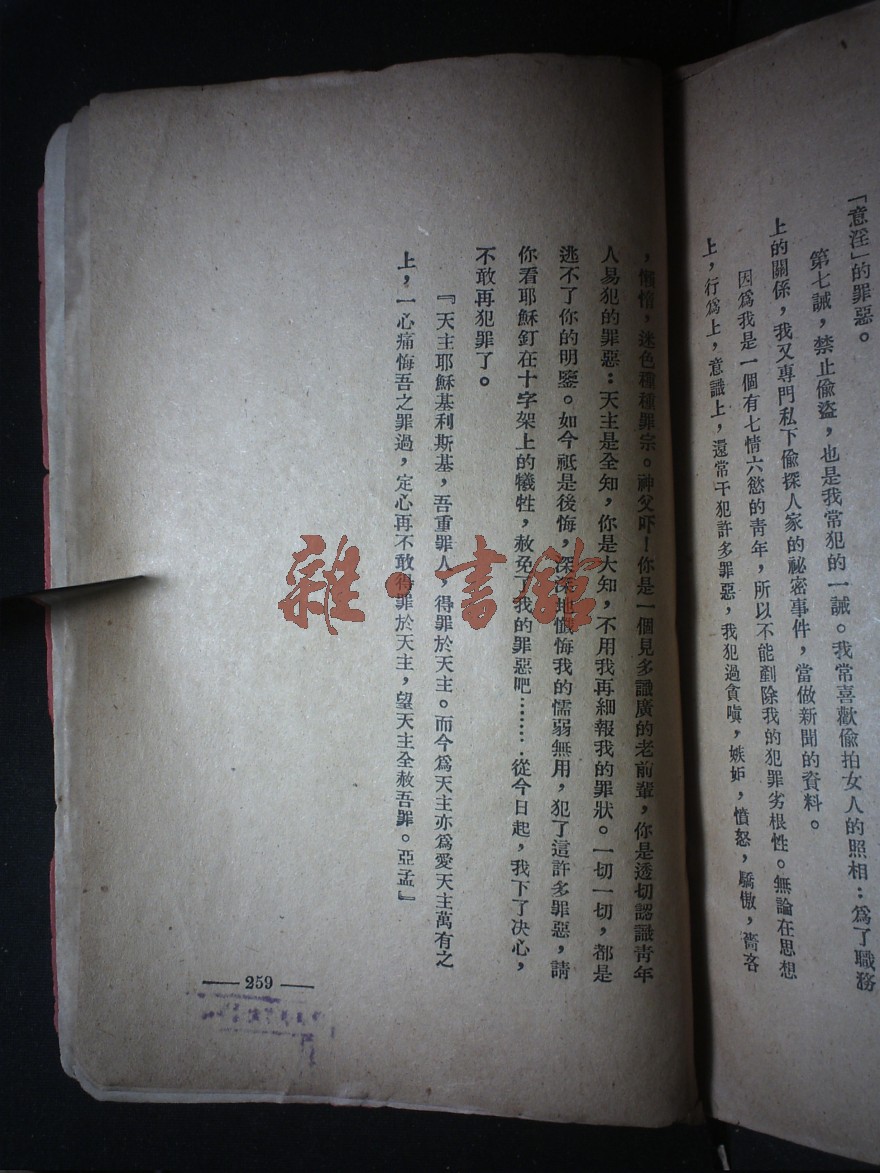 「意淫」的罪惡。
第七誡，禁止偷盜，也是我常犯的一誡。我常喜歡偷拍女人的照相：爲了職務
上的關係，我又專門私下偷探人家的祕密事件，當做新聞的資料。
因爲我是一個有七情六慾的青年，所以不能剷除我的犯罪劣根性。無論在思想
上，行爲上，意識上，還常干犯許多罪惡，我犯過貪嗔，嫉妒，憤怒，驕傲，嗇吝
，懶惰，迷色種種罪宗。神父吓！你是一個見多識廣的老前輩，你是透切認識青年
人易犯的罪惡：天主是全知，你是大知，不用我再細報我的罪狀。一切一切，都是
逃不了你的明鑒。如今祗是後悔，深深地懺悔我的懦弱無用，犯了這許多罪惡，請
你看耶穌釘在十字架上的犧牲，赦免了我的罪惡吧………從今日起，我下了决心，
不敢再犯罪了。
『天主耶穌基利斯基，吾重罪人，得罪於天主。而今爲天主亦爲愛天主萬有之
上，一心痛悔吾之罪過，定心再不敢得罪於天主，望天主全赦吾罪。亞孟』
— 259 —
雜·書館